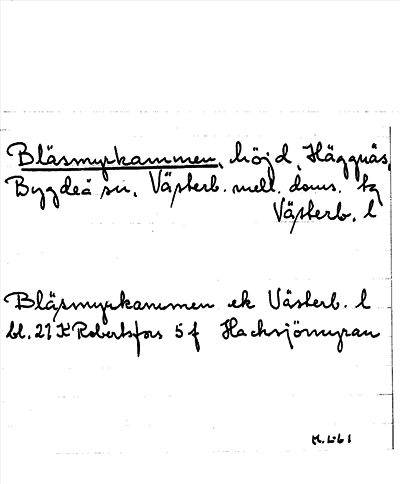 Bläsmyrkammen, höjd, Häggnäs,
Bygdeå sn, Västerb. mell. doms. tg
Västerb. l
Bläsmyrkammen ek Västerb. l
bl. 21 K Robertsfors 5 f Hacksjömyran